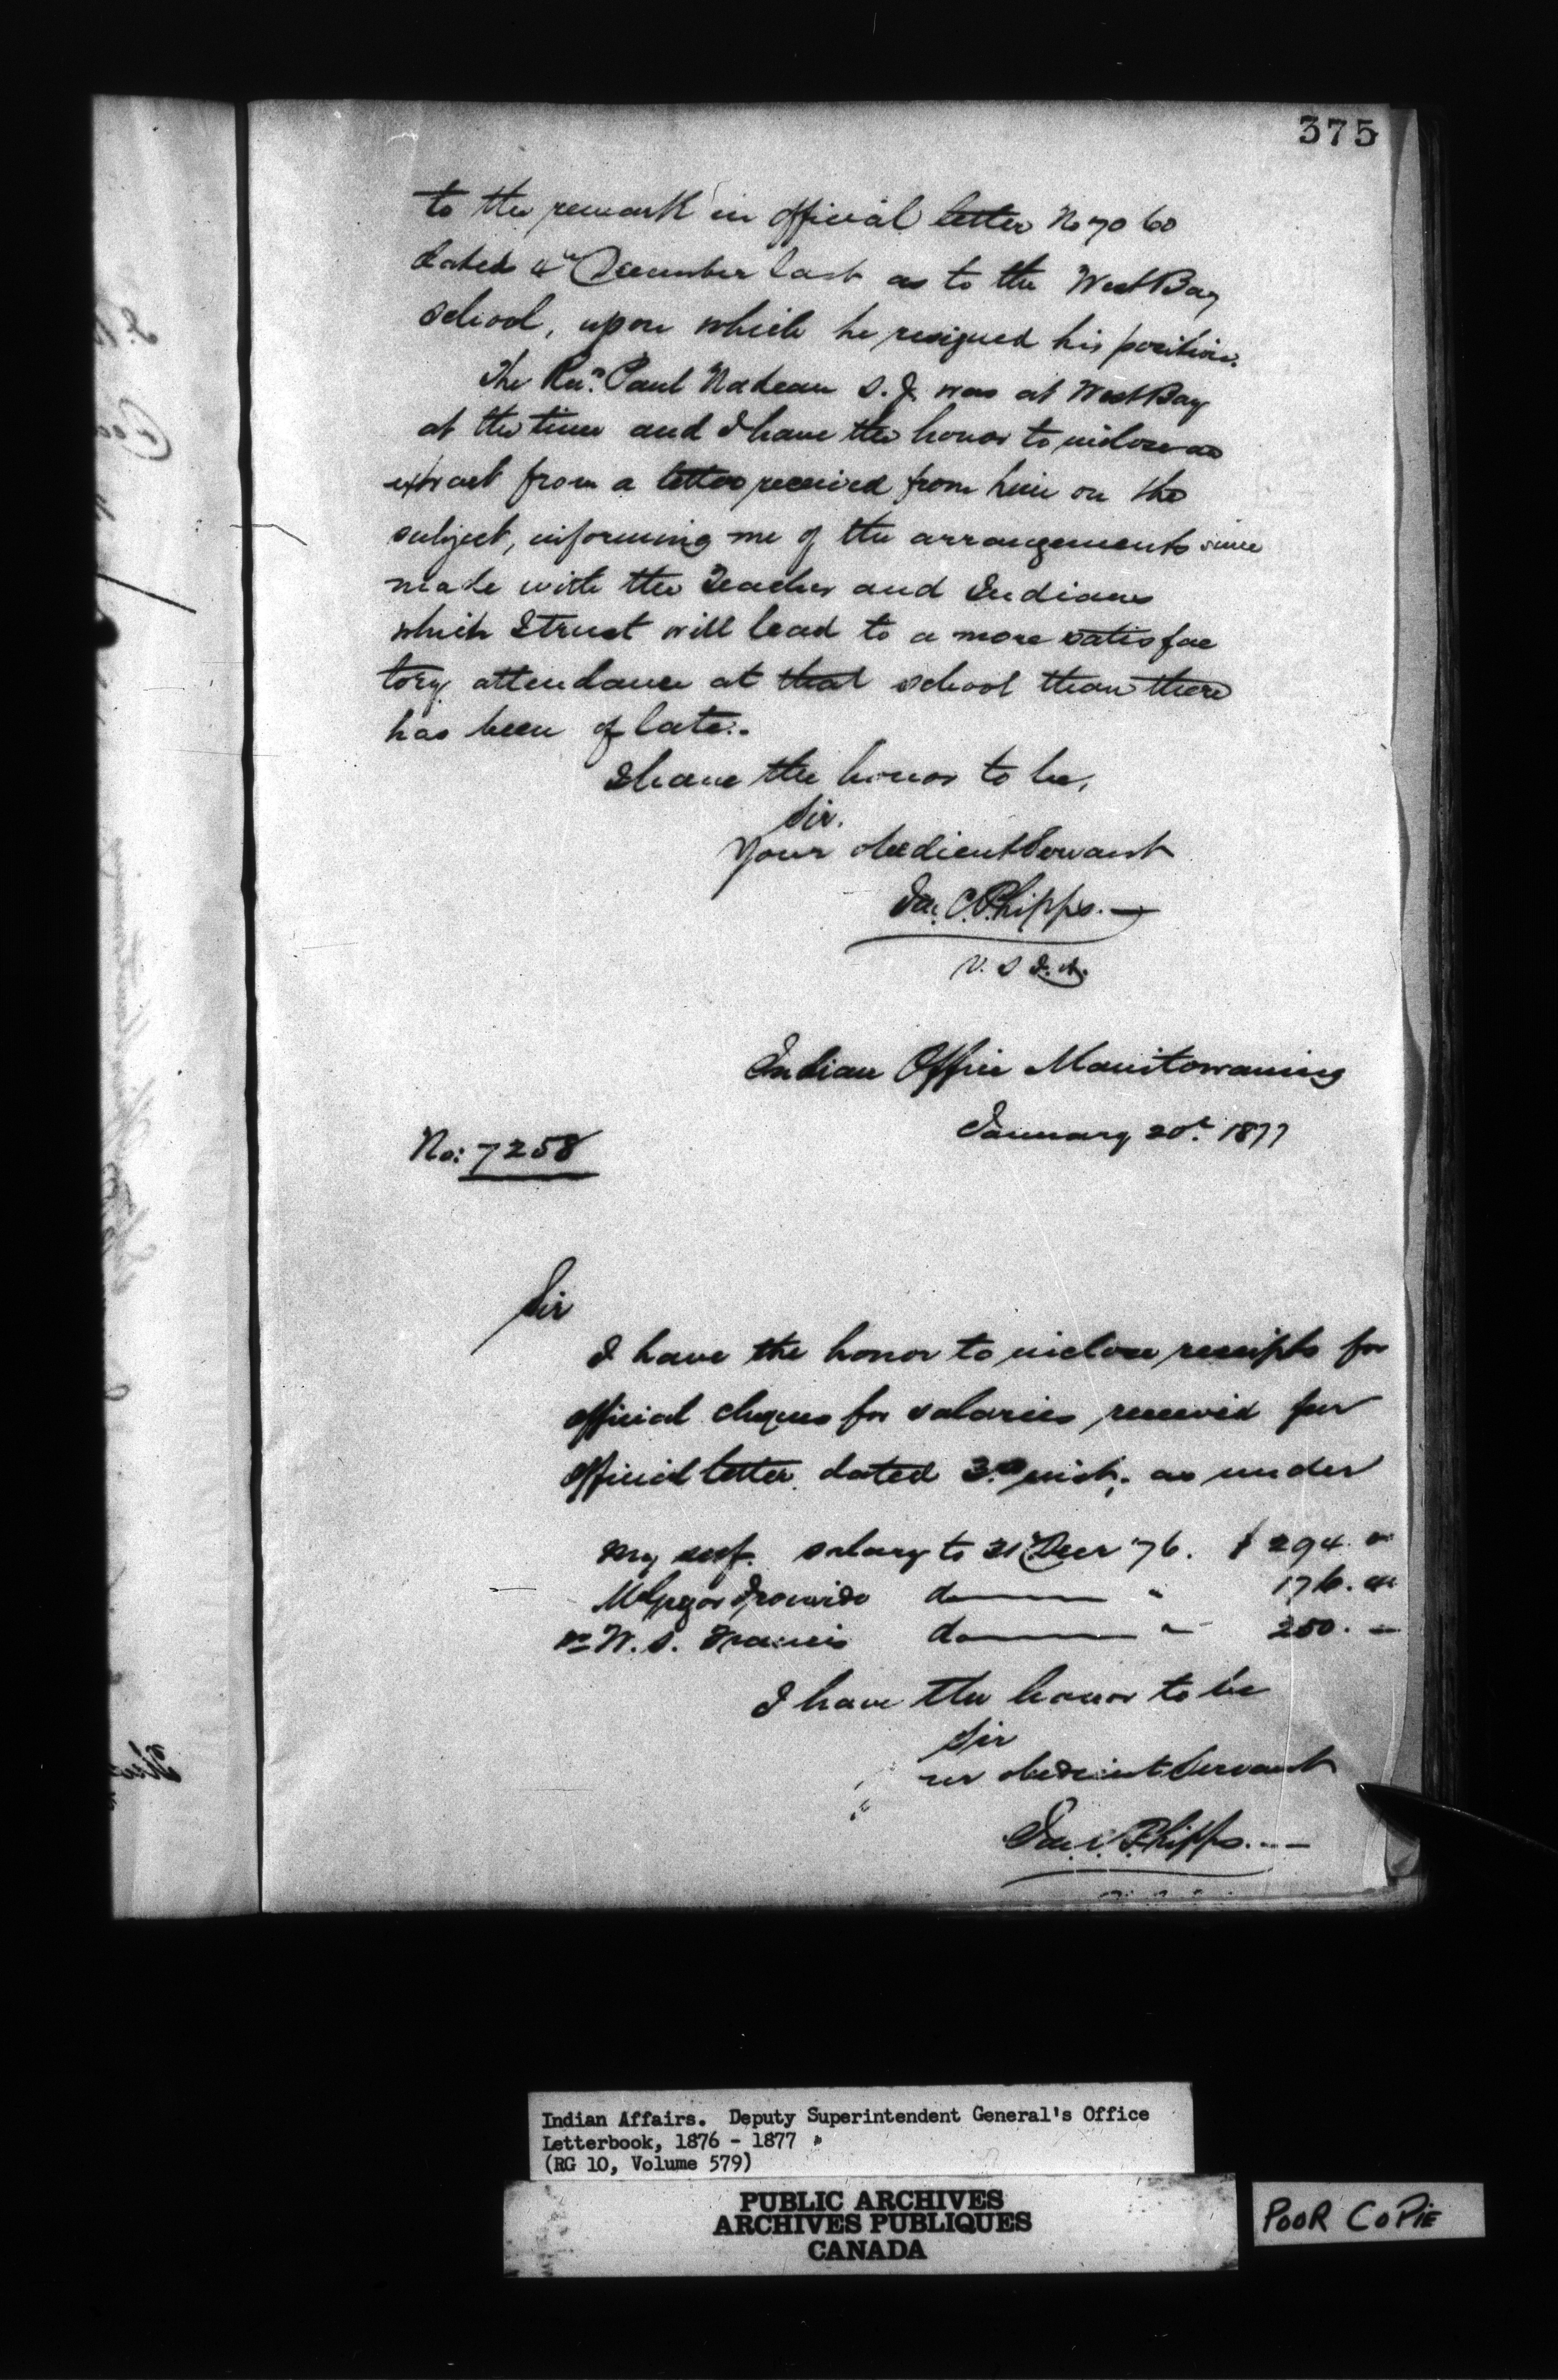 375
to the remark in official letter No 7060
dated 4th December last as to the West Bay
school, upon which he resigned his position.
The Revd. Paul Nadeau S.J. was at West Bay
at the time and I have the honor to inclose an
extract from a letter received from him on the
subject, informing me of the arrangements since
made with the Teacher and Indians
which I trust will lead to a more satisfac
tory attendance at that school than there
has been of late.
I have the honor to be,
Sir.
Your obedient Servant
Jas. C. Phipps.
V. S I. A.
Indian Office Manitowaning
January 20th. 1877
No: 7258
Sir
I have the honor to inclose receipts for
official cheques for salaries received per
official letter dated 3rd inst. as under
My self. salary to 31st Decr '76. $ 294.
McGregor Ironside do " 176.
Dr W. S. Francis do " 250. —
I have the honor to be
Sir
yr obedient Servant
Jas. C. Phipps.
Indian Affairs. Deputy Superintendent General's Office
Letterbook, 1876 - 1877
(RG 10, Volume 579)
PUBLIC ARCHIVES
ARCHIVES PUBLIQUES
CANADA
POOR COPIE